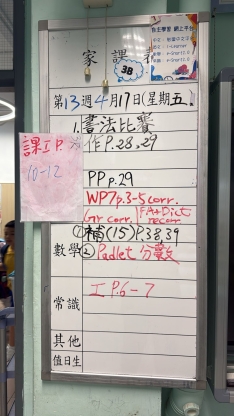 家課表
3B
自主學習 網上平台
第13週4月17日(星期五)
1. 書法比賽
作P.28,29
課工P.
10-12
PP p.29
WP7p.3-5 corr.
Gr corr. FA+Dict
recorr.
①補(15)P.38,39
數學②Padlet 分數
常識 工P.6-7
其他
值日生